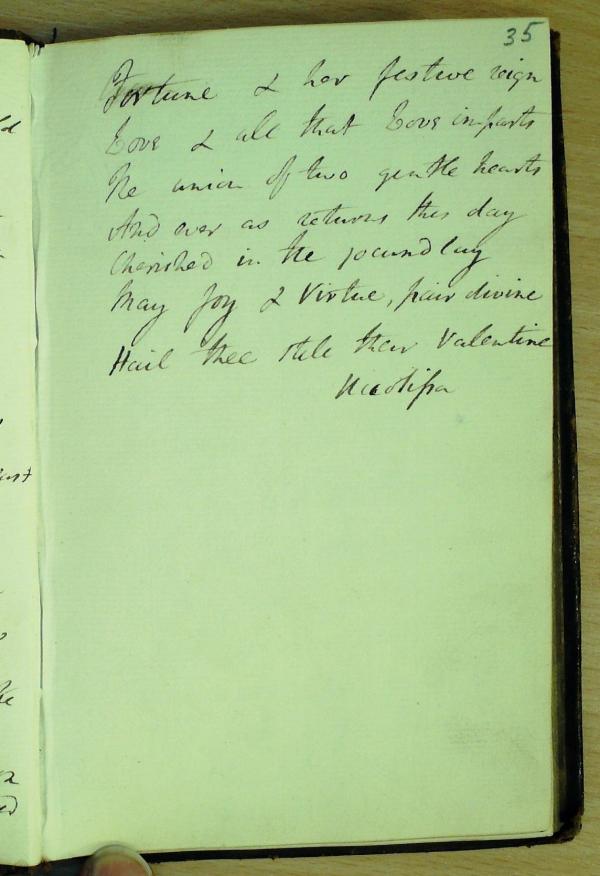 35
Fortune & her festive reign
Love & all that Love imparts
The union of two gentle hearts
And ever as returns this day
Cherished in the jocund lay
May Joy & Virtue, pair divine
Hail thee still their Valentine